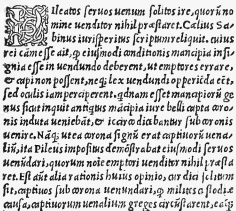 Pileatos seruos uenum solitos ire, quorũ no
mine uenditor nihil præstaret, Cælius Sa-
binus iurisperitus scriptum reliquit. cuius
rei cãm esse ait, q̃ eiusmodi conditionis mancipia insi
gnia esse in uendundo deberent, ut emptores errare,
& capi non possent, neq; lex uendundi opperiẽda eẽt,
sed oculis iam perciperent, qdnam esset mancipiorũ ge
nus sicut inquit antiquitus mãcipia iure belli capta coro
nis induta ueniebãt, & iccirco dicebantur sub coronis
uenire. Nãq; ut ea corona signũ erat captiuorũ uena-
liũ, ita Pileus impositus demõstrabat eiusmodi seruos
uenũdari, quorum noĩe emptori uenditor nihil præsta
ret. Est aũt alia rationis huius opinio, cur dici solitum
sit, captiuos sub corona uenundari, q̃ milites custodiæ
causa, captiuorum uenalium greges circũstarent, eaq;